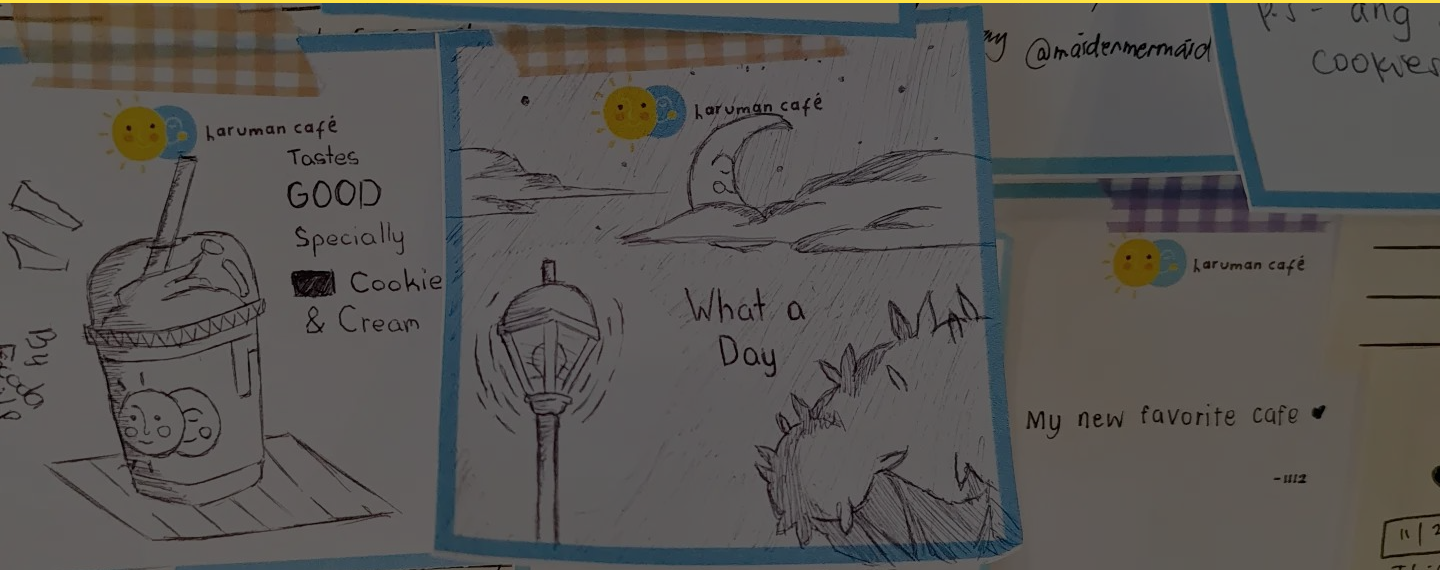 haruman café
Tastes
GOOD
Specially
Cookie
& Cream
haruman café
What a
Day
@maidenmermaid
P.S - ang
cookies
haruman café
My new favorite cafe ♥
-1112
11/2